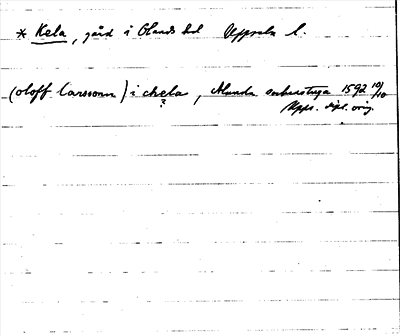 * Kela, gård i Olands hd Uppsala l.
(oloff larsson) i chela, Alunda sockenstuga 1592 10/10
?
Upps. dipl. orig.